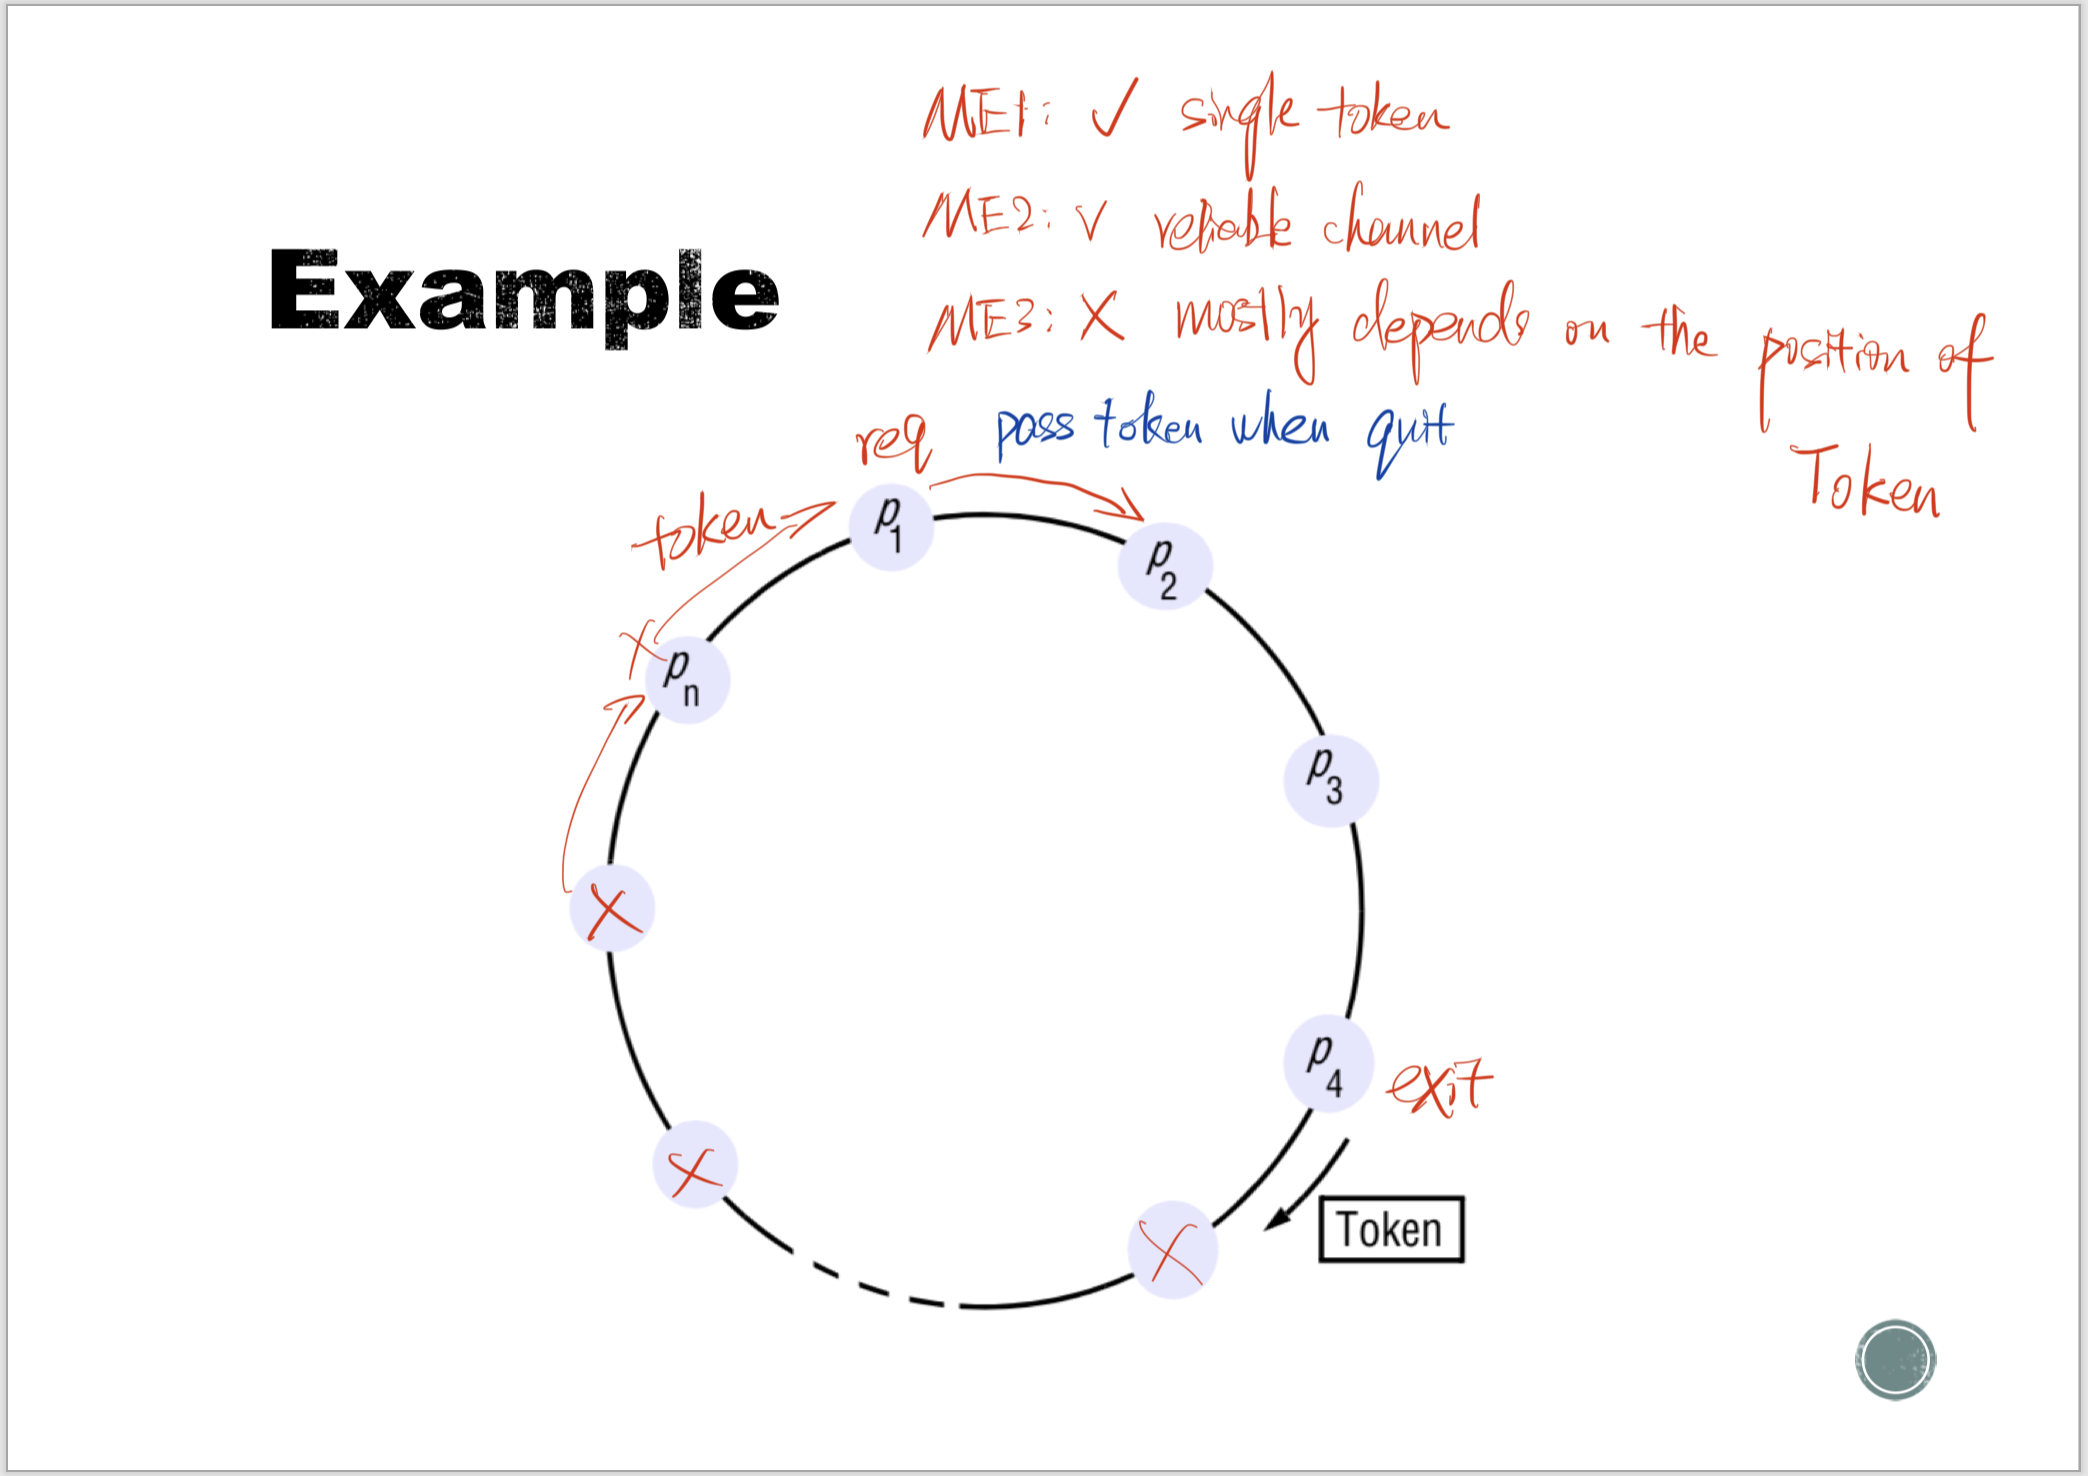 ME1: ✓ single token
ME2: ✓ reliable channel
Example
ME3: X mostly depends on the position of
Token
req pass token when quit
token
p1
p2
X
pn
p3
X
p4
exit
X
X
Token